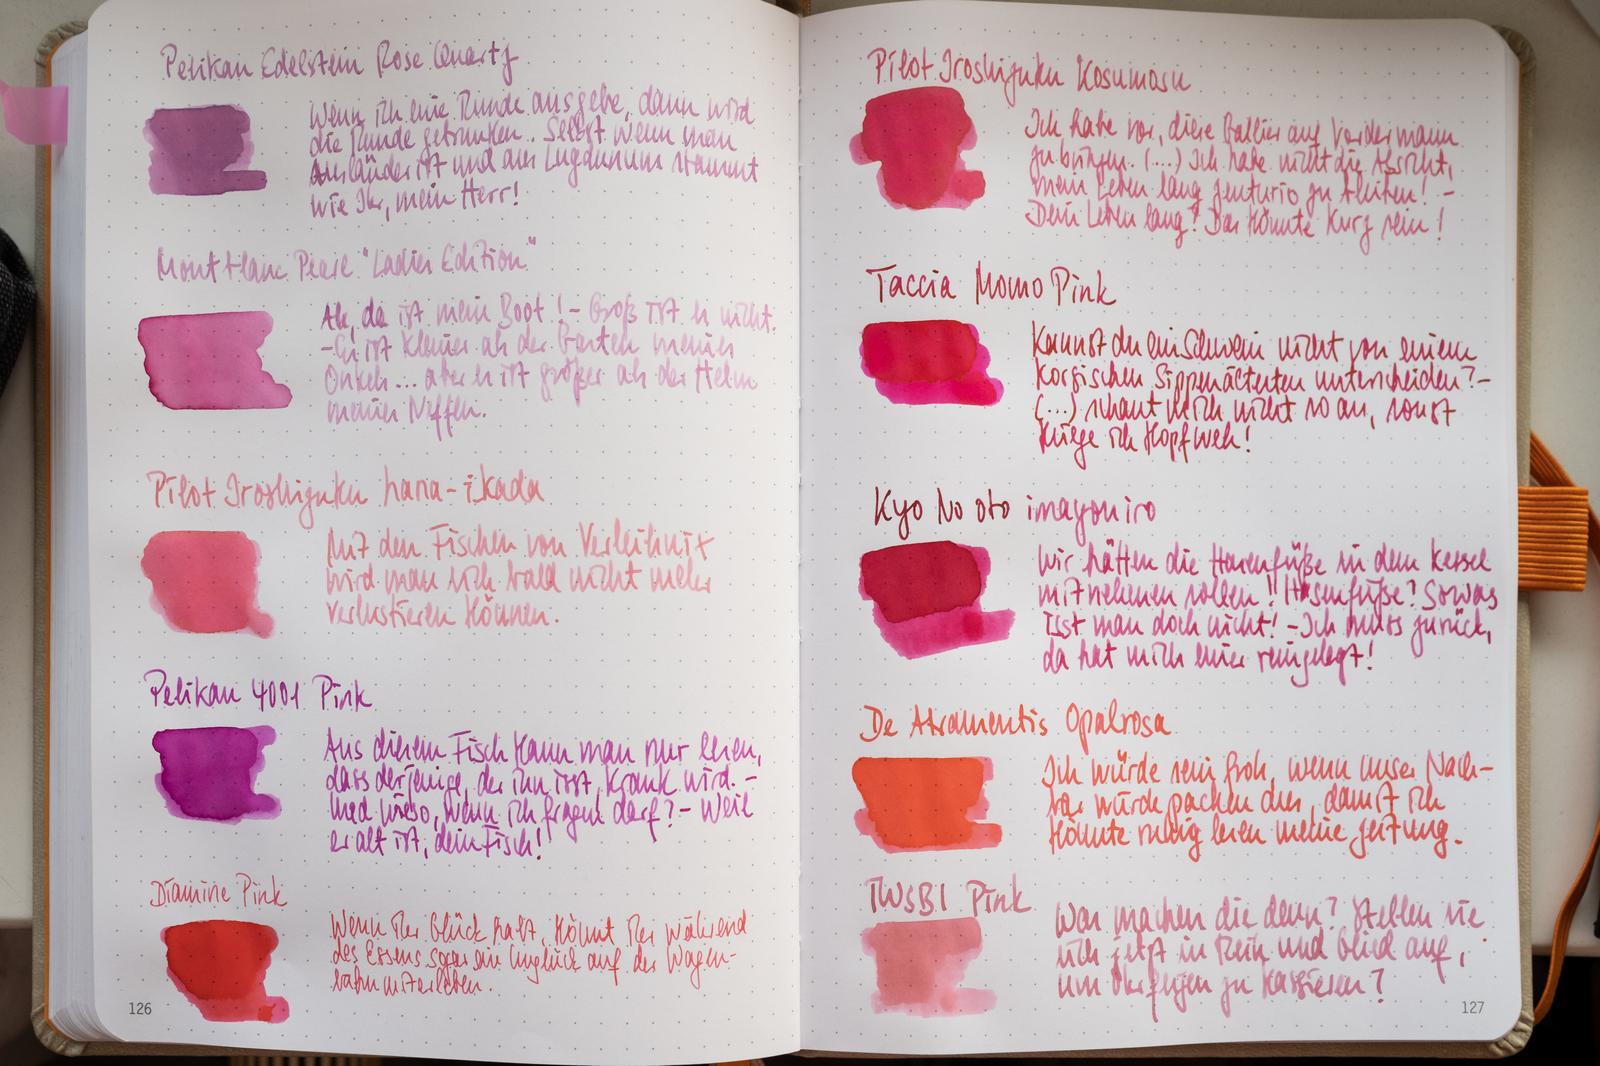 Pelikan Edelstein Rose Quartz
Wenn ich eine Runde ausgebe, dann wird
die Runde getrunken.. Selbst wenn man
Ausländer ist und aus Lugdunum stammt
wie Ihr, mein Herr!
Montblanc Pearl "Ladies Edition"
Ah, da ist mein Boot! - Groß ist es nicht.
- Es ist kleiner als der Garten meines
Onkels... aber es ist größer als der Helm
meines Neffen.
Pilot Iroshizuku hana-ikada
Mit den Fischen von Verleihnix
wird man sich bald nicht mehr
verlustieren können.
Pelikan 4001 Pink
Aus diesem Fisch kann man nur lesen,
dass derjenige, der ihn isst, krank wird. -
Und wieso, wenn ich fragen darf? - Weil
er alt ist, dein Fisch!
Diamine Pink
Wenn Ihr Glück habt, könnt Ihr während
des Essens sogar ein Unglück auf der Wagen-
bahn miterleben.
126
Pilot Iroshizuku Kosumosu
Ich habe vor, diese Gallier auf Vordermann
zu bringen. (...) Ich habe nicht die Absicht,
mein Leben lang Zenturio zu bleiben! -
Dein Leben lang? Das könnte kurz sein!
Taccia Momo Pink
Kannst du ein Schwein nicht von einem
korsischen Sippenältesten unterscheiden? -
(...) schaut mich nicht so an, sonst
kriege ich Kopfweh!
Kyo No oto imayouiro
Wir hätten die Hasenfüße in dem Kessel
mitnehmen sollen!! Hasenfüße? Sowas
isst man doch nicht! - Ich muss zurück,
da hat mich einer reingelegt!
De Atramentis Opalrosa
Ich würde sein froh, wenn unser Nach-
bar würde packen aus, damit ich
könnte ruhig lesen meine Zeitung.
TWSBI Pink
Was machen die denn? Stellen sie
sich jetzt in Reih und Glied auf,
um Ohrfeigen zu kassieren?
127